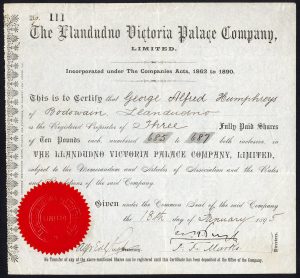 No. 111
The Llandudno Victoria Palace Company,
LIMITED.
Incorporated under The Companies Acts, 1862 to 1890.
This is to Certify that George Alfred Humphreys
of Bodowain, Llandudno
is the Registered Proprietor of Three Fully Paid Shares
of Ten Pounds each, numbered 685 to 687 both inclusive, in
THE LLANDUDNO VICTORIA PALACE COMPANY, LIMITED,
subject to the Memorandum and Articles of Association and the Rules
and Regulations of the said Company.
Given under the Common Seal of the said Company
the 13th day of January 1895
Directors.
No Transfer of any of the above-mentioned Shares can be registered until this Certificate has been deposited at the Office of the Company.